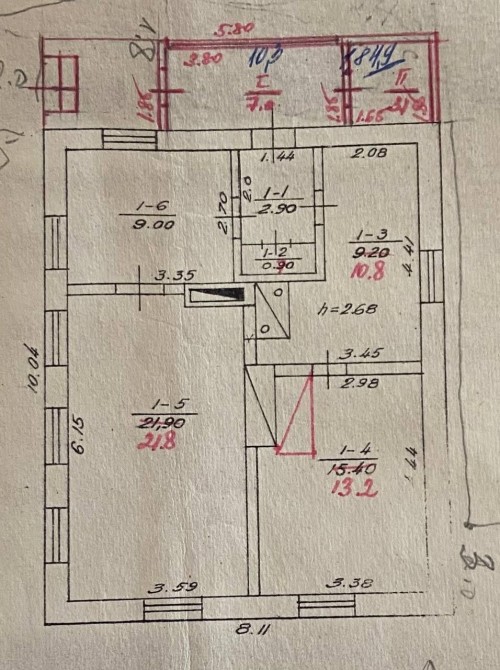 5.80
3.80
10,3
I
7.8
1.86
1.8
II
1.66
1.44
2.08
2.0
1-1
2.90
2.70
1-6
9.00
1-3
9.20
10.8
4.41
1-2
0.90
3.35
h=2.68
3.45
2.98
10.04
6.15
1-5
21,90
21.8
1-4
15.40
13.2
3.59
3.38
8.11